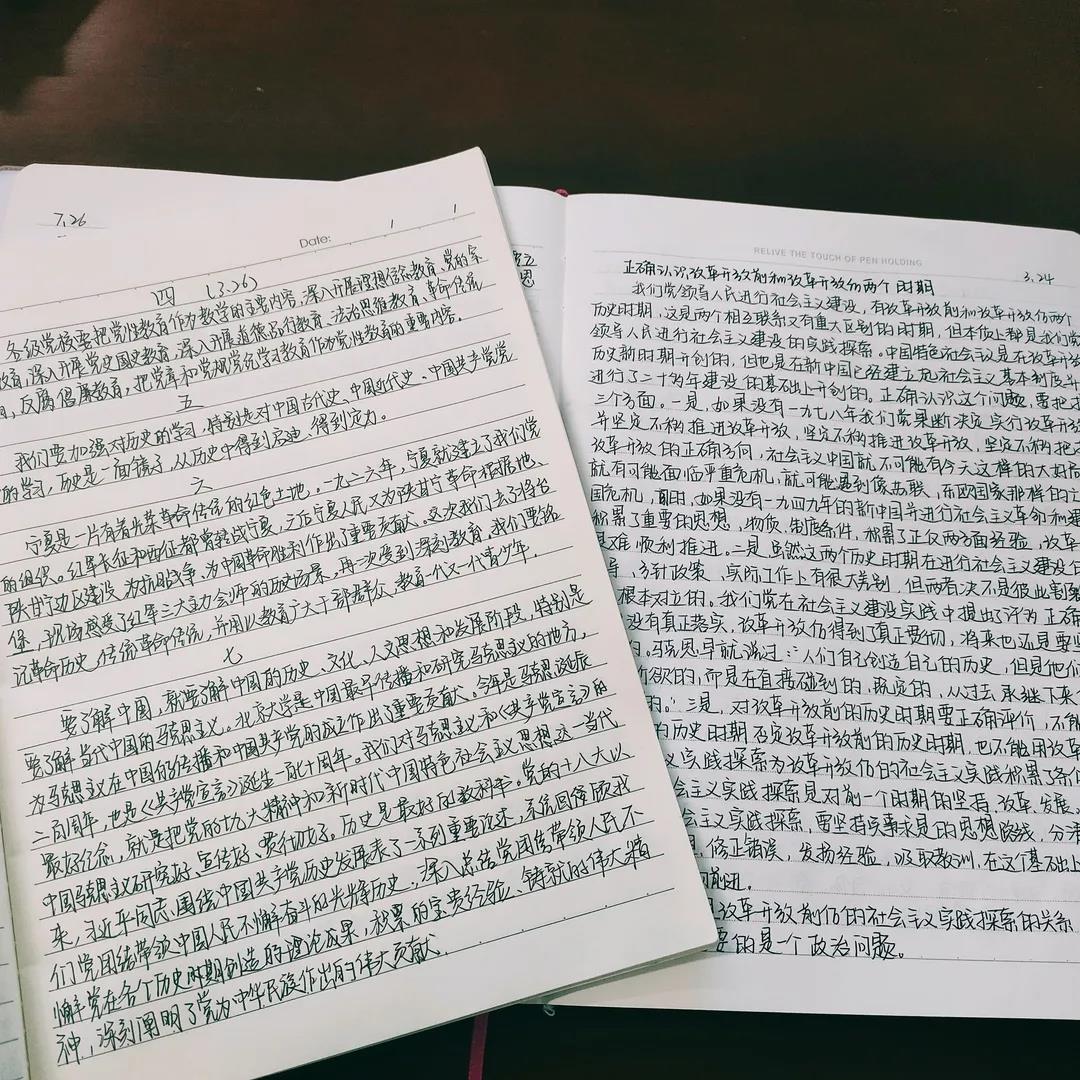 7.26
Date:
四 (3.26)
各级党校要把党性教育作为教学的主要内容,深入开展理想信念教育、党的宗
教育,深入开展党史国史教育,深入开展道德品行教育、法治思维教育、革命传统
育,反腐倡廉教育,把党章和党规党纪学习教育作为党性教育的重要内容。
五
我们要加强对历史的学习,特别是对中国古代史、中国近代史、中国共产党党
的学习,历史是一面镜子,从历史中得到启迪、得到定力。
六
宁夏是一片有着光荣革命传统的红色土地。一九二六年,宁夏就建立了我们党
的组织。红军长征和西征都曾转战宁夏,之后宁夏人民又为陕甘宁革命根据地、
陕甘宁边区建设、为抗日战争、为中国革命胜利作出了重要贡献。这次我们去了将台
堡,现场感受了红军三大主力会师的历史场景,再一次受到深刻教育,我们要铭
记革命历史、传统革命传统,并用以教育广大干部群众、教育一代又一代青少年。
七
要了解中国,就要了解中国的历史、文化、人文思想和发展阶段,特别是
要了解当代中国的马克思主义。北京大学是中国最早传播和研究马克思主义的地方,
为马克思主义在中国的传播和中国共产党的成立作出了重要贡献。今年是马克思诞辰
二百周年,也是《共产党宣言》诞生一百七十周年。我们对马克思主义和《共产党宣言》的
最好纪念,就是把党的十九大精神和新时代中国特色社会主义思想这一当代
中国马克思主义研究好、宣传好、贯彻好。历史是最好的教科书。党的十八大以
来,习近平同志围绕中国共产党历史发展表了一系列重要论述,系统回顾我
们党团结带领中国人民不懈奋斗的光辉历史,深入总结党团结带领人民不
懈党在各个历史时期创造的理论成果,积累的宝贵经验、铸就的伟大精
神,深刻阐明了党为中华民族作出的伟大贡献.
RELIVE THE TOUCH OF PEN HOLDING
正确认识改革开放前和改革开放后两个时期 3.24
我们党领导人民进行社会主义建设,有改革开放前和改革开放后两个
历史时期,这是两个相互联系又有重大区别的时期,但本质上都是我们党
领导人民进行社会主义建设的实践探索。中国特色社会主义是在改革开放
历史新时期开创的,但也是在新中国已经建立起社会主义基本制度并
进行了二十多年建设的基础上开创的。正确认识这个问题,要把握
三个方面。一是,如果没有一九七八年我们党果断决定实行改革开放
并坚定不移推进改革开放,坚定不移推进改革开放,坚定不移把
改革开放的正确方向,社会主义中国就不可能有今天这样的大好局
就有可能面临严重危机,就可能遇到像苏联、东欧国家那样的
国危机,同时,如果没有一九四九年的新中国并进行社会主义革命和建
积累了重要的思想、物质、制度条件,积累了正反两方面经验,改革
是难顺利推进。二是虽然这两个历史时期在进行社会主义建设
导、方针政策、实际工作上有很大差别,但两者决不是彼此割裂
根本对立的。我们党在社会主义建设实践中提出了许多正确
没有真正落实,改革开放后得到了真正贯彻,将来也还是要坚
。马克思早就说过:“人们自己创造自己的历史,但是他们
所欲的,而是在直接碰到的、既定的、从过去承继下来
的。”三是,对改革开放前的历史时期要正确评价,不能
的历史时期否定改革开放前的历史时期,也不能用改革
义实践探索为改革开放后的社会主义实践积累了条件
义实践探索是对前一个时期的坚持、改革、发展。
会主义实践探索,要坚持实事求是的思想路线,分清
,修正错误,发扬经验,吸取教训,在这个基础上
前进.
改革开放前后的社会主义实践探索的关系
要的是一个政治问题。